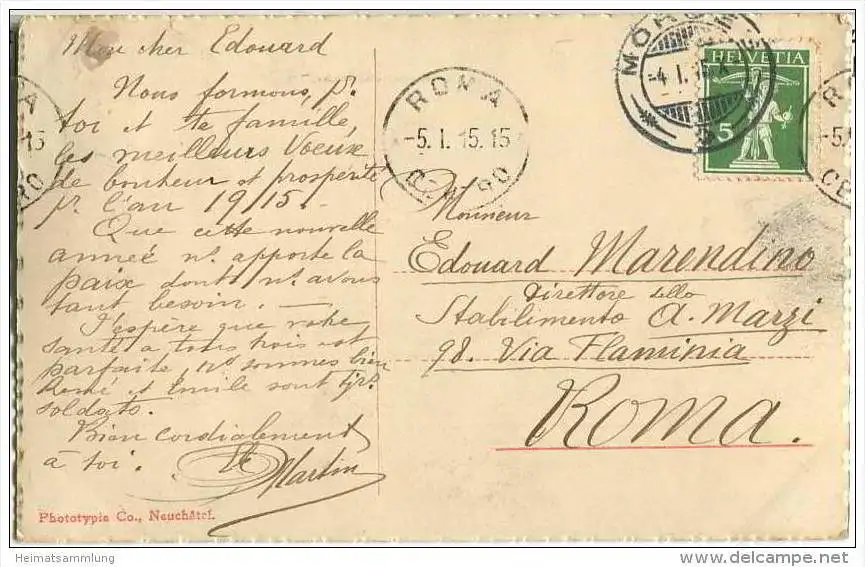 Mon cher Edouard
Nous formons, pr.
toi et ta famille,
les meilleurs Voeux
de bonheur et prosperité
pr. l'an 1915.
Que cette nouvelle
année ns. apporte la
paix dont ns. avons
tant besoin. —
J'espère que votre
santé à tous trois est
parfaite, ns. sommes bien
René et Emile sont tjrs.
soldats.
Bien cordialement
à toi.
Martin
Phototypie Co., Neuchâtel.
ROMA
-5. I. 15. 15
-4. I. 15
HELVETIA
5
Monsieur
Edouard Marendino
Direttore dello
Stabilimento A. Marzi
98. Via Flaminia
Roma.
Heimatsammlung
www.delcampe.net